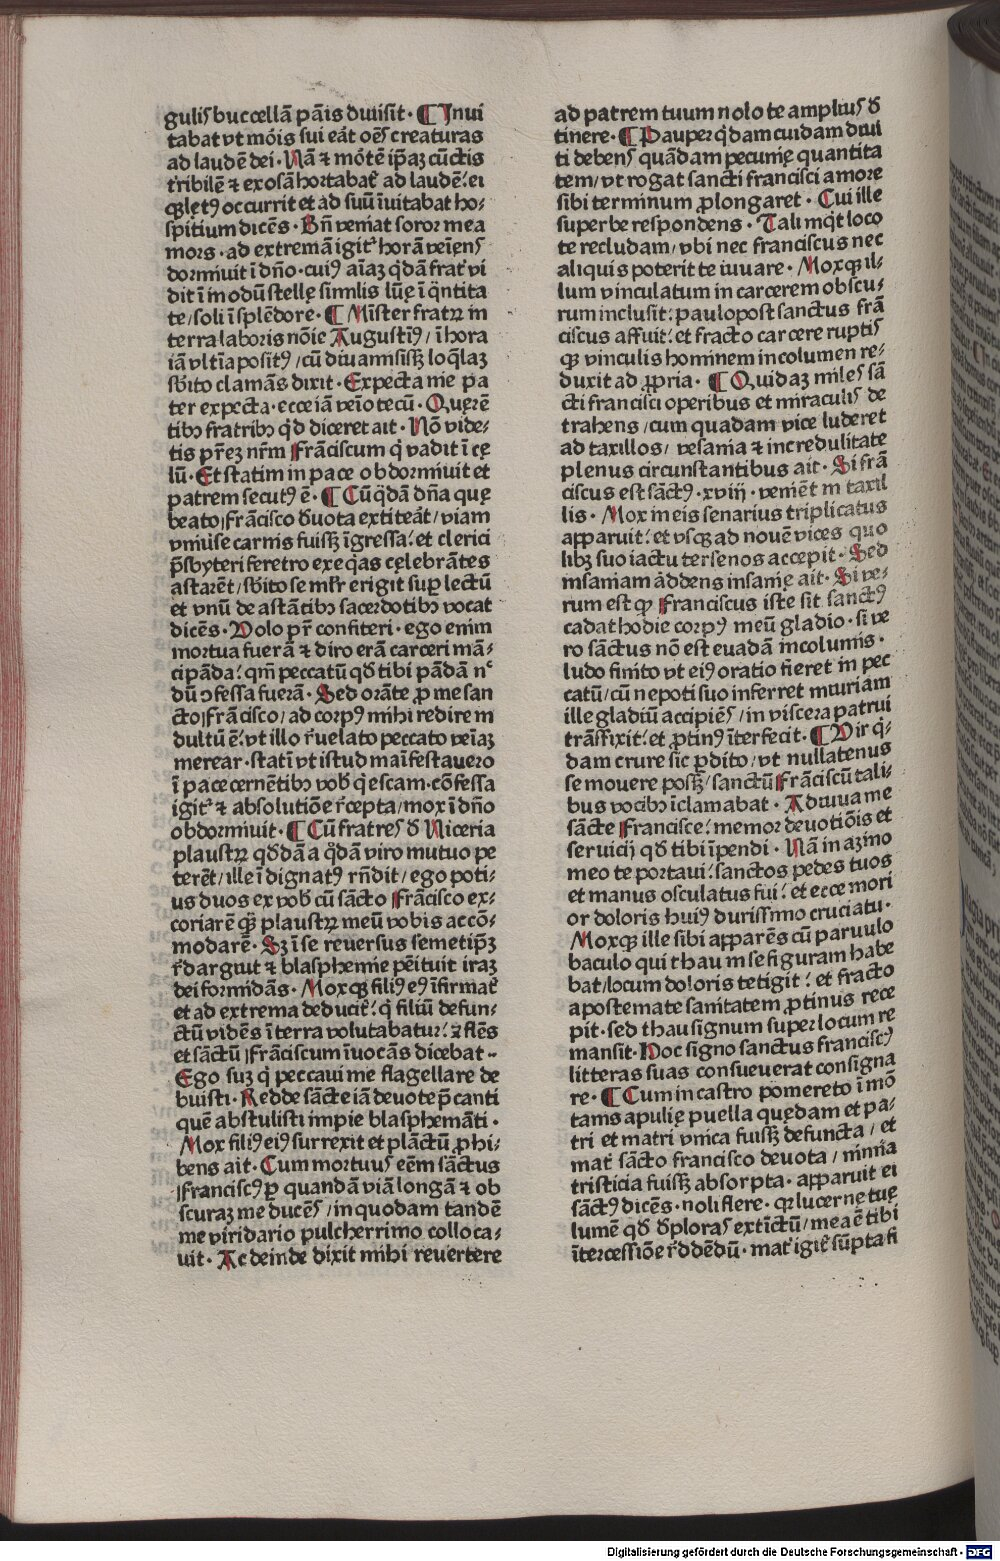 gulis buccellā pāis diuisit · ¶ Inui
tabat vt mōis sui eāt oēs creaturas
ad laudē dei · Nā ⁊ mōtē ip̄aꝫ cūctis
t̄ribilē ⁊ exosā hortabat᷑ ad laudē : ei
qꝫ lętꝰ occurrit et ad suū īuitabat ho⸗
spitium dicēs · Bn̄ veniat soror mea
mors · ad extremā igit᷑ horā veiēns
dormiuit ī dn̄o · cuiꝰ aīaꝫ q̇dā frat᷑ vi
dit ī modū stellę similis lūę ī q̄ntita
te/ soli ī splēdore · ¶ Mīster fratꝝ in
terra laboris nōie Augustīꝰ/ ī hora
iā vltīa positꝰ/ cū diu amisisꝫ loq̄laꝫ
sb̄ito clamās dixit · Expecta me pa
ter expecta · ecce iā veīo tecū · Quęrē
tibꝫ fratribꝫ qͥd diceret ait · Nō vide⸗
tis pr̄eꝫ nr̄m Frāciscum qͥ vadit ī cę
lū · Et statim in pace obdormiuit et
patrem secutꝰ ē · ¶ Cū q̄dā dn̄a que
beato Frācisco d̄uota extiteāt/ viam
vniu̇se carnis fuisꝫ īgressa : et clerici
p̄sbyteri feretro exeq̄as cęlebrātes
astarēt/ sb̄ito se mlr̄ erigit suꝑ lectū
et vnū de astātibꝫ sacerdotibꝫ vocat
dicēs · Volo pr̄ confiteri · ego enim
mortua fuerā ⁊ diro erā carceri mā⸗
cipāda : qm̄ peccatū qd̄ tibi pādā nᶜ
dū ↄfessa fuerā · Sed orāte ꝓ me san
cto Frācisco/ ad corpꝰ mihi redire in
dultū ē : vt illo r̄uelato peccato veīaꝫ
merear · statī vt istud maīfestauero
ī pace cernētibꝫ vob̄ qͥescam · cōfessa
igit᷑ ⁊ absolutiōe r̄cepta/ mox ī dn̄o
obdormiuit · ¶ Cū fratres d̄ Niceria
plaustꝝ qd̄dā a qͦdā viro mutuo pe
terēt/ ille īdignatꝰ rn̄dit/ ego poti⸗
us duos ex vob̄ cū sācto Frācisco ex⸗
coriarē qꝫ plaustꝝ meū vobis accō⸗
modarē · Sꝫ ī se reuersus semetip̄ꝫ
r̄darguit ⁊ blasphemie pēituit iraꝫ
dei formidās · Moxqꝫ filiꝰ eꝰ īfirmat᷑
et ad extrema deducit᷑ : qͥ filiū defun⸗
ctū vidēs ī terra volutabatur : ⁊ flēs
et sāctū Frāciscum īuocās dicebat ··
Ego suꝫ qͥ peccaui me flagellare de
buisti · Redde sācte iā deuote p̄canti
quē abstulisti impie blasphemāti ·
Mox filiꝰ eiꝰ surrexit et plāctū ꝓhi⸗
bens ait · Cum mortuus eēm sāctus
Franciscꝰ ꝑ quandā viā longā ⁊ ob
scuraꝫ me ducēs/ in quodam tandē
me viridario pulcherrimo colloca⸗
uit · Ac deinde dixit mihi reuertere
ad patrem tuum nolo te amplius d̄
tinere · ¶ Pauper qͥdam cuidam diui
ti debens quādam pecunię quantita
tem/ vt rogat sancti francisci amore
sibi terminum ꝓlongaret · Cui ille
superbe respondens · Tali inqͥt loco
te recludam/ vbi nec franciscus nec
aliquis poterit te iuuare · Moxqꝫ il⸗
lum vinculatum in carcerem obscu⸗
rum inclusit : paulopost sanctus frā
ciscus affuit : et fracto carcere ruptis
qꝫ vinculis hominem incolumen re⸗
duxit ad ꝓpria · ¶ Quidaꝫ miles sā
cti francisci operibus et miraculis de
trahens/ cum quadam vice luderet
ad taxillos/ vesania ⁊ incredulitate
plenus circunstantibus ait · Si frā
ciscus est sāctꝰ · xviij · veniēt in taxil
lis · Mox in eis senarius triplicatus
apparuit : et vsqꝫ ad nouē vices quo
libꝫ suo iactu ter senos accepit · Sed
insaniam addens insanię ait · Si ve⸗
rum est qꝙ Franciscus iste sit sanctꝰ
cadat hodie corpꝰ meū gladio · si ve
ro sāctus nō est euadā incolumis ·
ludo finito vt eiꝰ oratio fieret in pec
catū/ cū nepoti suo inferret iniuriam
ille gladiū accipiēs/ in viscera patrui
trāsfixit : et ꝓtinꝰ īterfecit · ¶ Vir qͥ⸗
dam crure sic ꝑdito/ vt nullatenus
se mouere posꝫ/ sanctū Frāciscū tali⸗
bus vocibꝫ īclamabat · Adiuua me
sācte Francisce : memor deuotiōis et
seruicij qd̄ tibi īpendi · Nā in azino
meo te portaui : sanctos pedes tuos
et manus osculatus fui : et ecce mori
or doloris huiꝰ durissimo cruciatu ·
Moxqꝫ ille sibi apparēs cū paruulo
baculo qui thau in se figuram habe
bat/ locum doloris tetigit : et fracto
apostemate sanitatem ꝓtinus rece
pit · sed thau signum super locum re
mansit · Hoc signo sanctus franciscꝰ
litteras suas consueuerat consigna
re · ¶ Cum in castro pomereto ī mō
tams apulię puella quędam et pa⸗
tri et matri vnica fuisꝫ defuncta/ et
mat᷑ sācto francisco deuota/ nimia
tristicia fuisꝫ absorpta · apparuit ei
sāctꝰ dicēs · noli flere · qꝛ lucernę tuę
lumē qd̄ d̄ploras extīctū/ mea ē tibi
ītercessiōe r̄ddēdū · mat᷑ igit᷑ sūpta fi
Digitalisierung gefördert durch die Deutsche Forschungsgemeinschaft · DFG